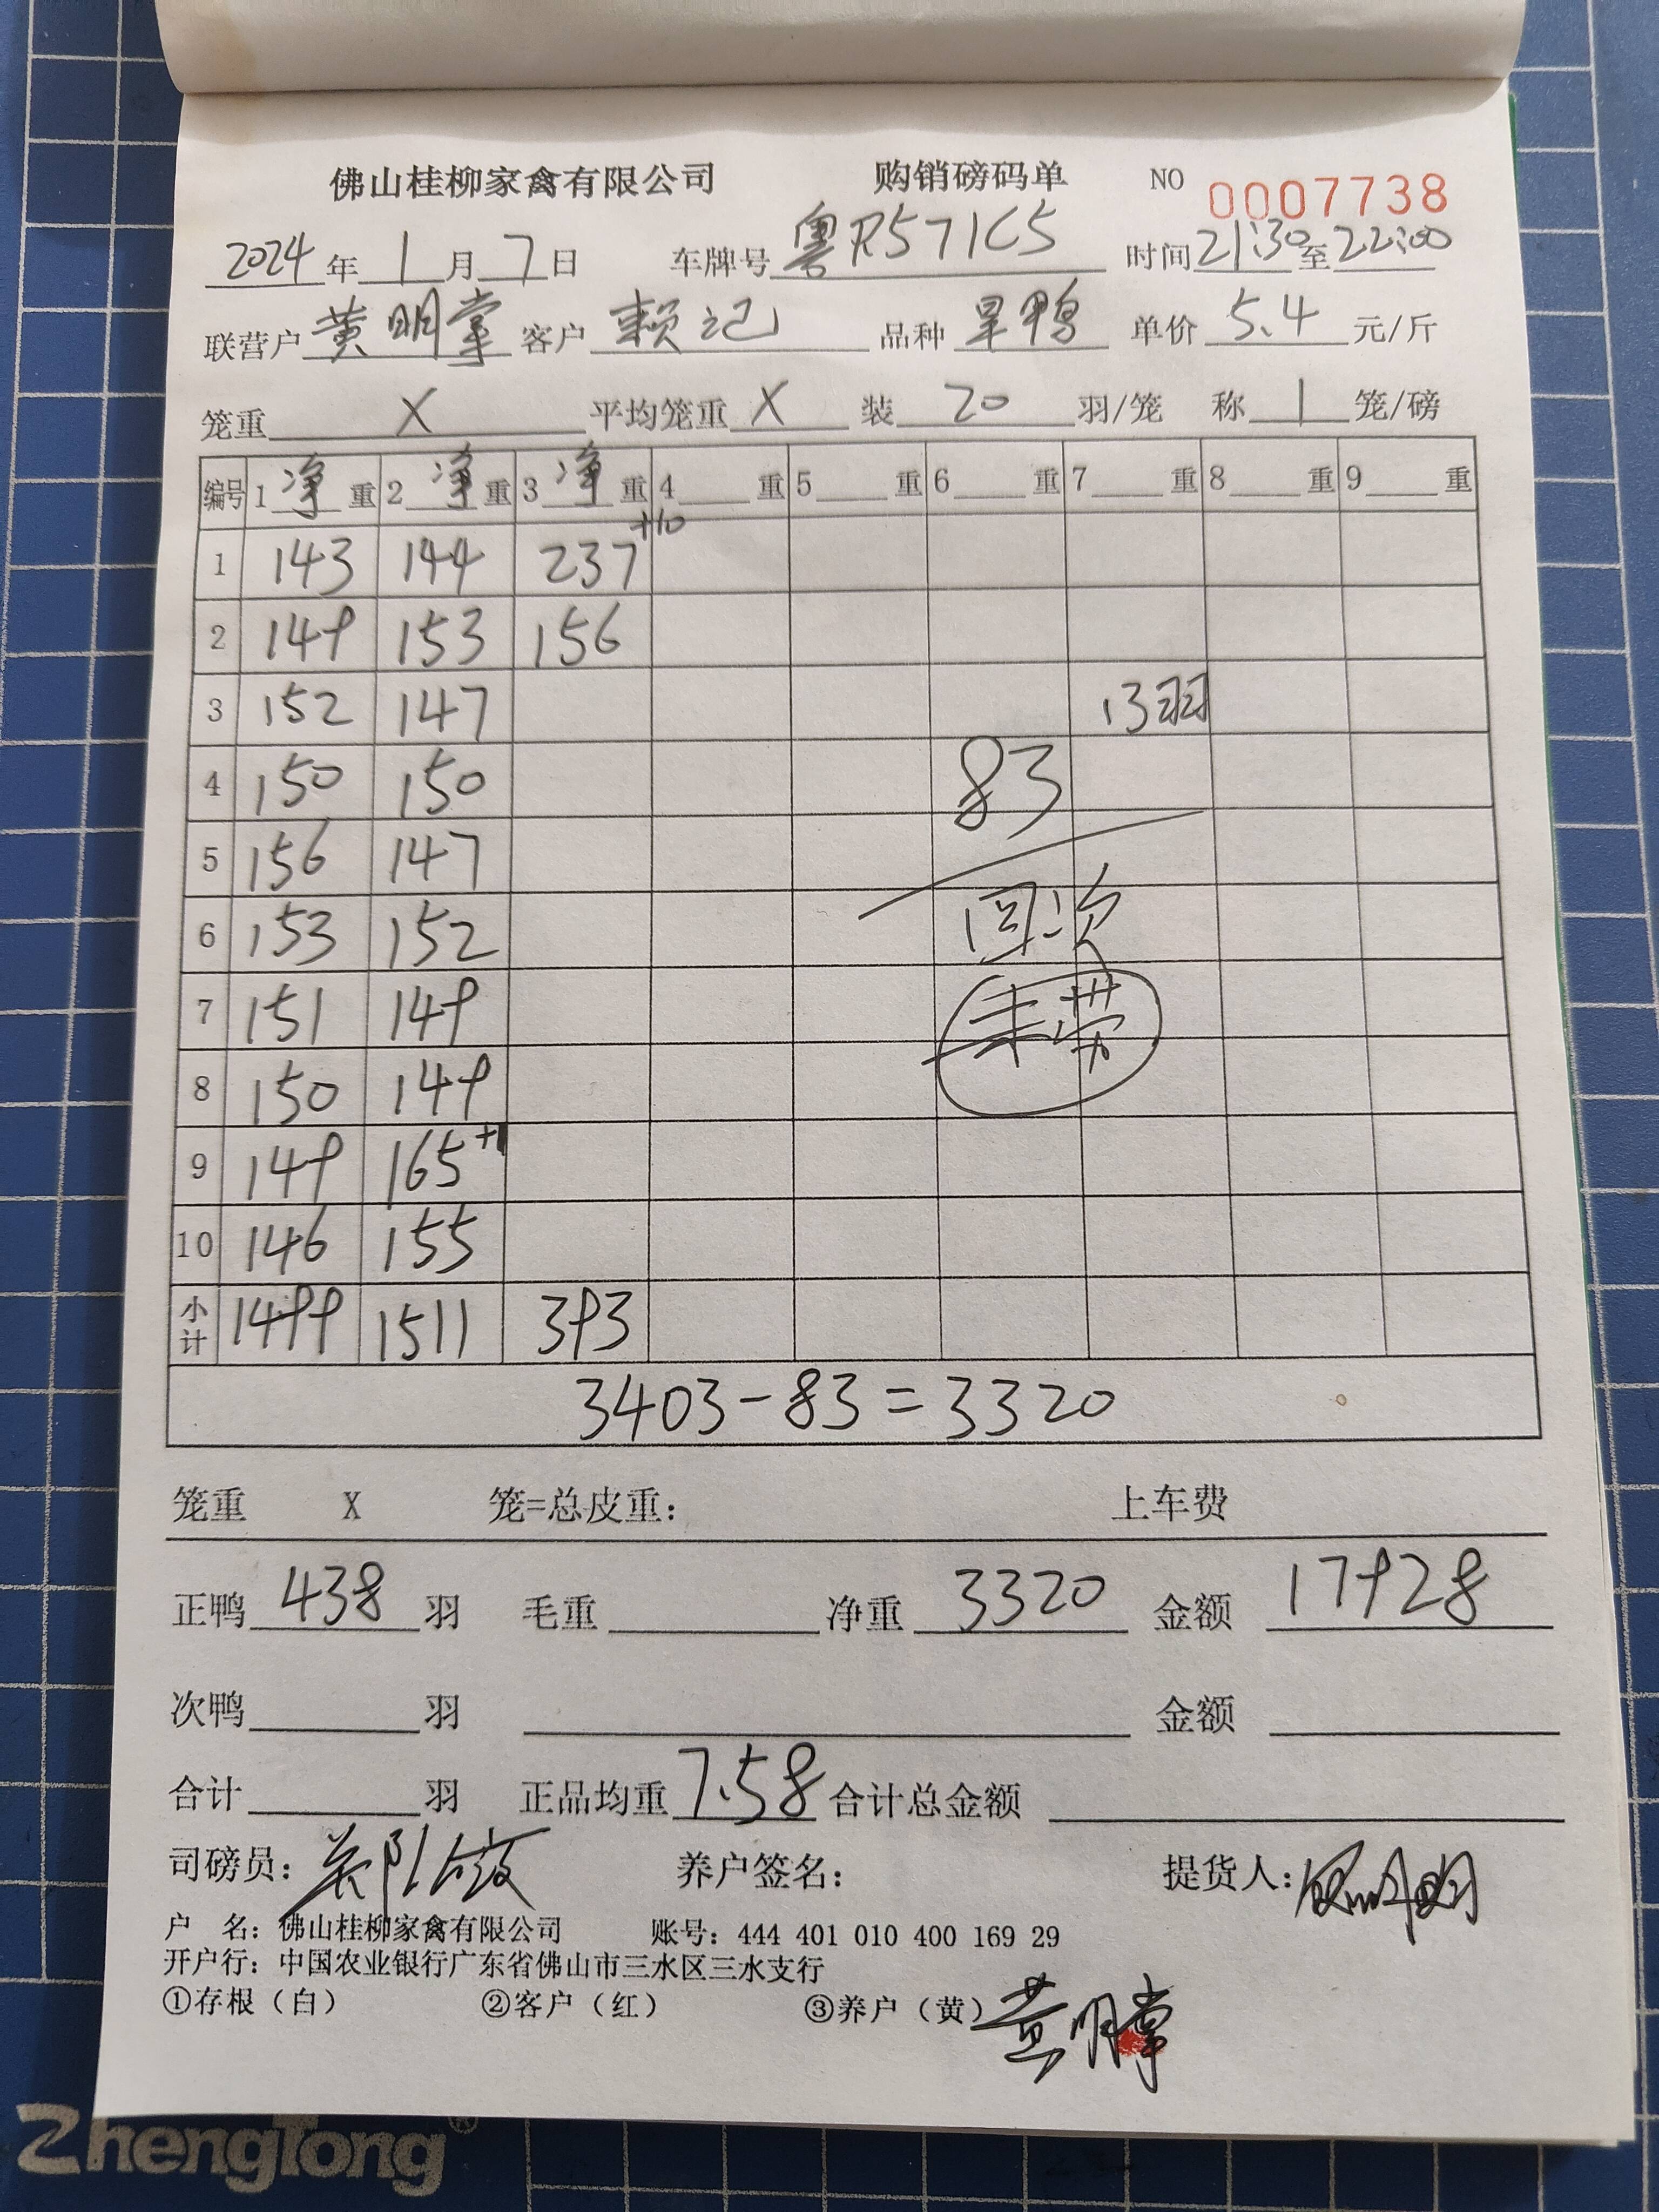 佛山桂柳家禽有限公司 购销磅码单 NO 0007738
2024年1月7日 车牌号 粤R571C5 时间21:30至22:00
联营户 黄明掌 客户 赖记 品种 旱鸭 单价 5.4 元/斤
笼重 X 平均笼重 X 装 20 羽/笼 称 1 笼/磅
编号 1净重 2净重 3净重 4重 5重 6重 7重 8重 9重
1 143 144 237+10
2 149 153 156
3 152 147 13羽
4 150 150 83
5 156 147
6 153 152 回次
7 151 149 未劳
8 150 149
9 149 165+1
10 146 155
小计 1499 1511 393
3403-83=3320
笼重 X 笼=总皮重: 上车费
正鸭 438 羽 毛重 净重 3320 金额 17928
次鸭 羽 金额
合计 羽 正品均重 7.58 合计总金额
司磅员: 养户签名: 提货人:
户 名: 佛山桂柳家禽有限公司 账号: 444 401 010 400 169 29
开户行: 中国农业银行广东省佛山市三水区三水支行
①存根（白） ②客户（红） ③养户（黄） 黄明掌
ZhengTong®